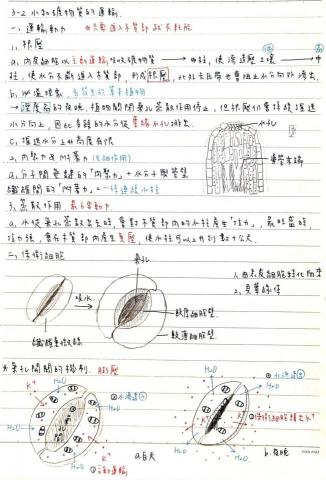 3-2 水和礦物質的運輸.
一. 運輸動力 只要進入木質部就不耗能
1. 根壓
a. 內皮細胞以主動運輸吸收礦物質 → 中柱, 使滲透壓 土壤 中
柱, 使水分不斷進入木質部, 形成根壓, 此外卡氏帶也會阻止水分向外滲出.
b. 泌溢現象. 多發生於草本植物
→ 溼度高的夜晚, 植物關閉氣孔蒸散作用停止, 但根壓仍會持續推送
水分向上, 因此多餘的水分從葉緣水孔排出.
水孔
c. 推送水分上升高度有限
2. 內聚力 & 附著力 (毛細作用)
葉脈末端
a. 分子間氫鍵的「內聚力」+ 水分子與管壁
纖維間的「附著力」← 維持連續水柱
3. 蒸散作用. 最主要動力
a. 水從氣孔蒸散出去時, 會對木質部內的水柱產生「拉力」, 最旺盛時,
拉力強, 會在木質部內產生負壓, 使水柱可以上升到數十公尺.
二. 保衛細胞
氣孔
吸水
1. 由表皮細胞特化而來
2. 具葉綠體
較厚細胞壁
較薄細胞壁
纖維素微絲
※ 氣孔開閉的機制. 膨壓
H₂O
H₂O
K⁺
K⁺
H₂O
H₂O
① 主動運輸
a. 白天
H₂O
H₂O
K⁺
保衛細胞釋出 K⁺
H₂O
b. 夜晚